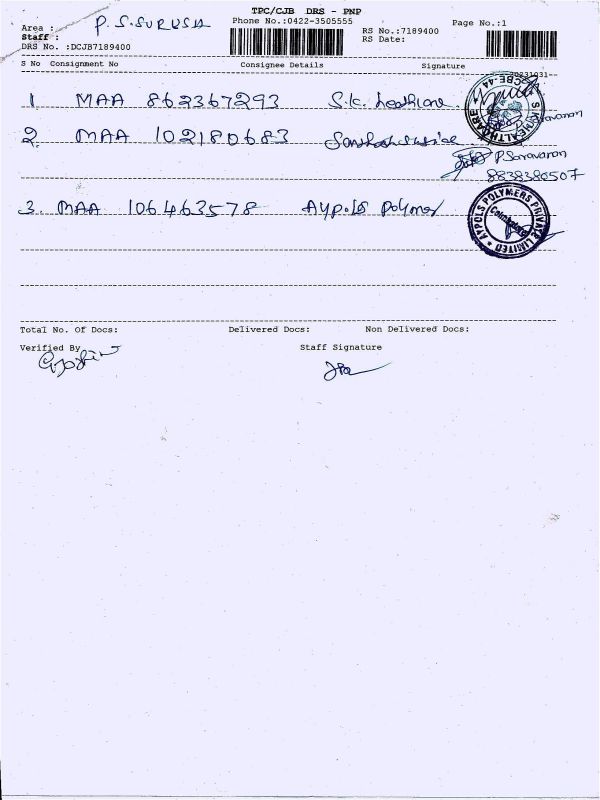 TPC/CJB DRS - PNP
Area : P.S.SURUSA
Phone No.:0422-3505555
Page No.:1
Staff :
RS No.:7189400
DRS No. :DCJB7189400
RS Date:
S No Consignment No Consignee Details Signature
1 MAA 862367293 S.K. healthcare
S K HEALTHCARE CBE-44
2. MAA 102180683
P Saravanan
8838380507
3. MAA 106463578 Aypols polymer
AYPOLS POLYMERS PRIVATE LIMITED
Coimbatore
Total No. Of Docs: Delivered Docs: Non Delivered Docs:
Verified By Staff Signature